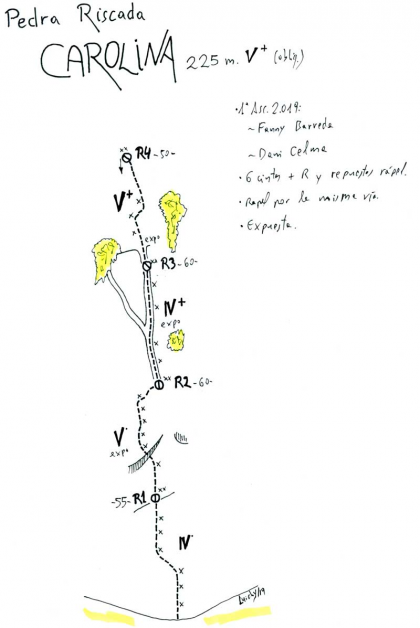 Pedra Riscada
CAROLINA 225 m. V+ (oblig.)
• 1ª Asc. 2.019:
~ Fanny Barveda
~ Dani Celma
• 6 cintas + R y repuestos rápel.
• Rapel por la misma vía.
• Expuesta.
R4 -50-
V+
expo
R3 -60-
IV+
expo
R2 -60-
V-
expo
-55- R1
IV-
Luichy/19